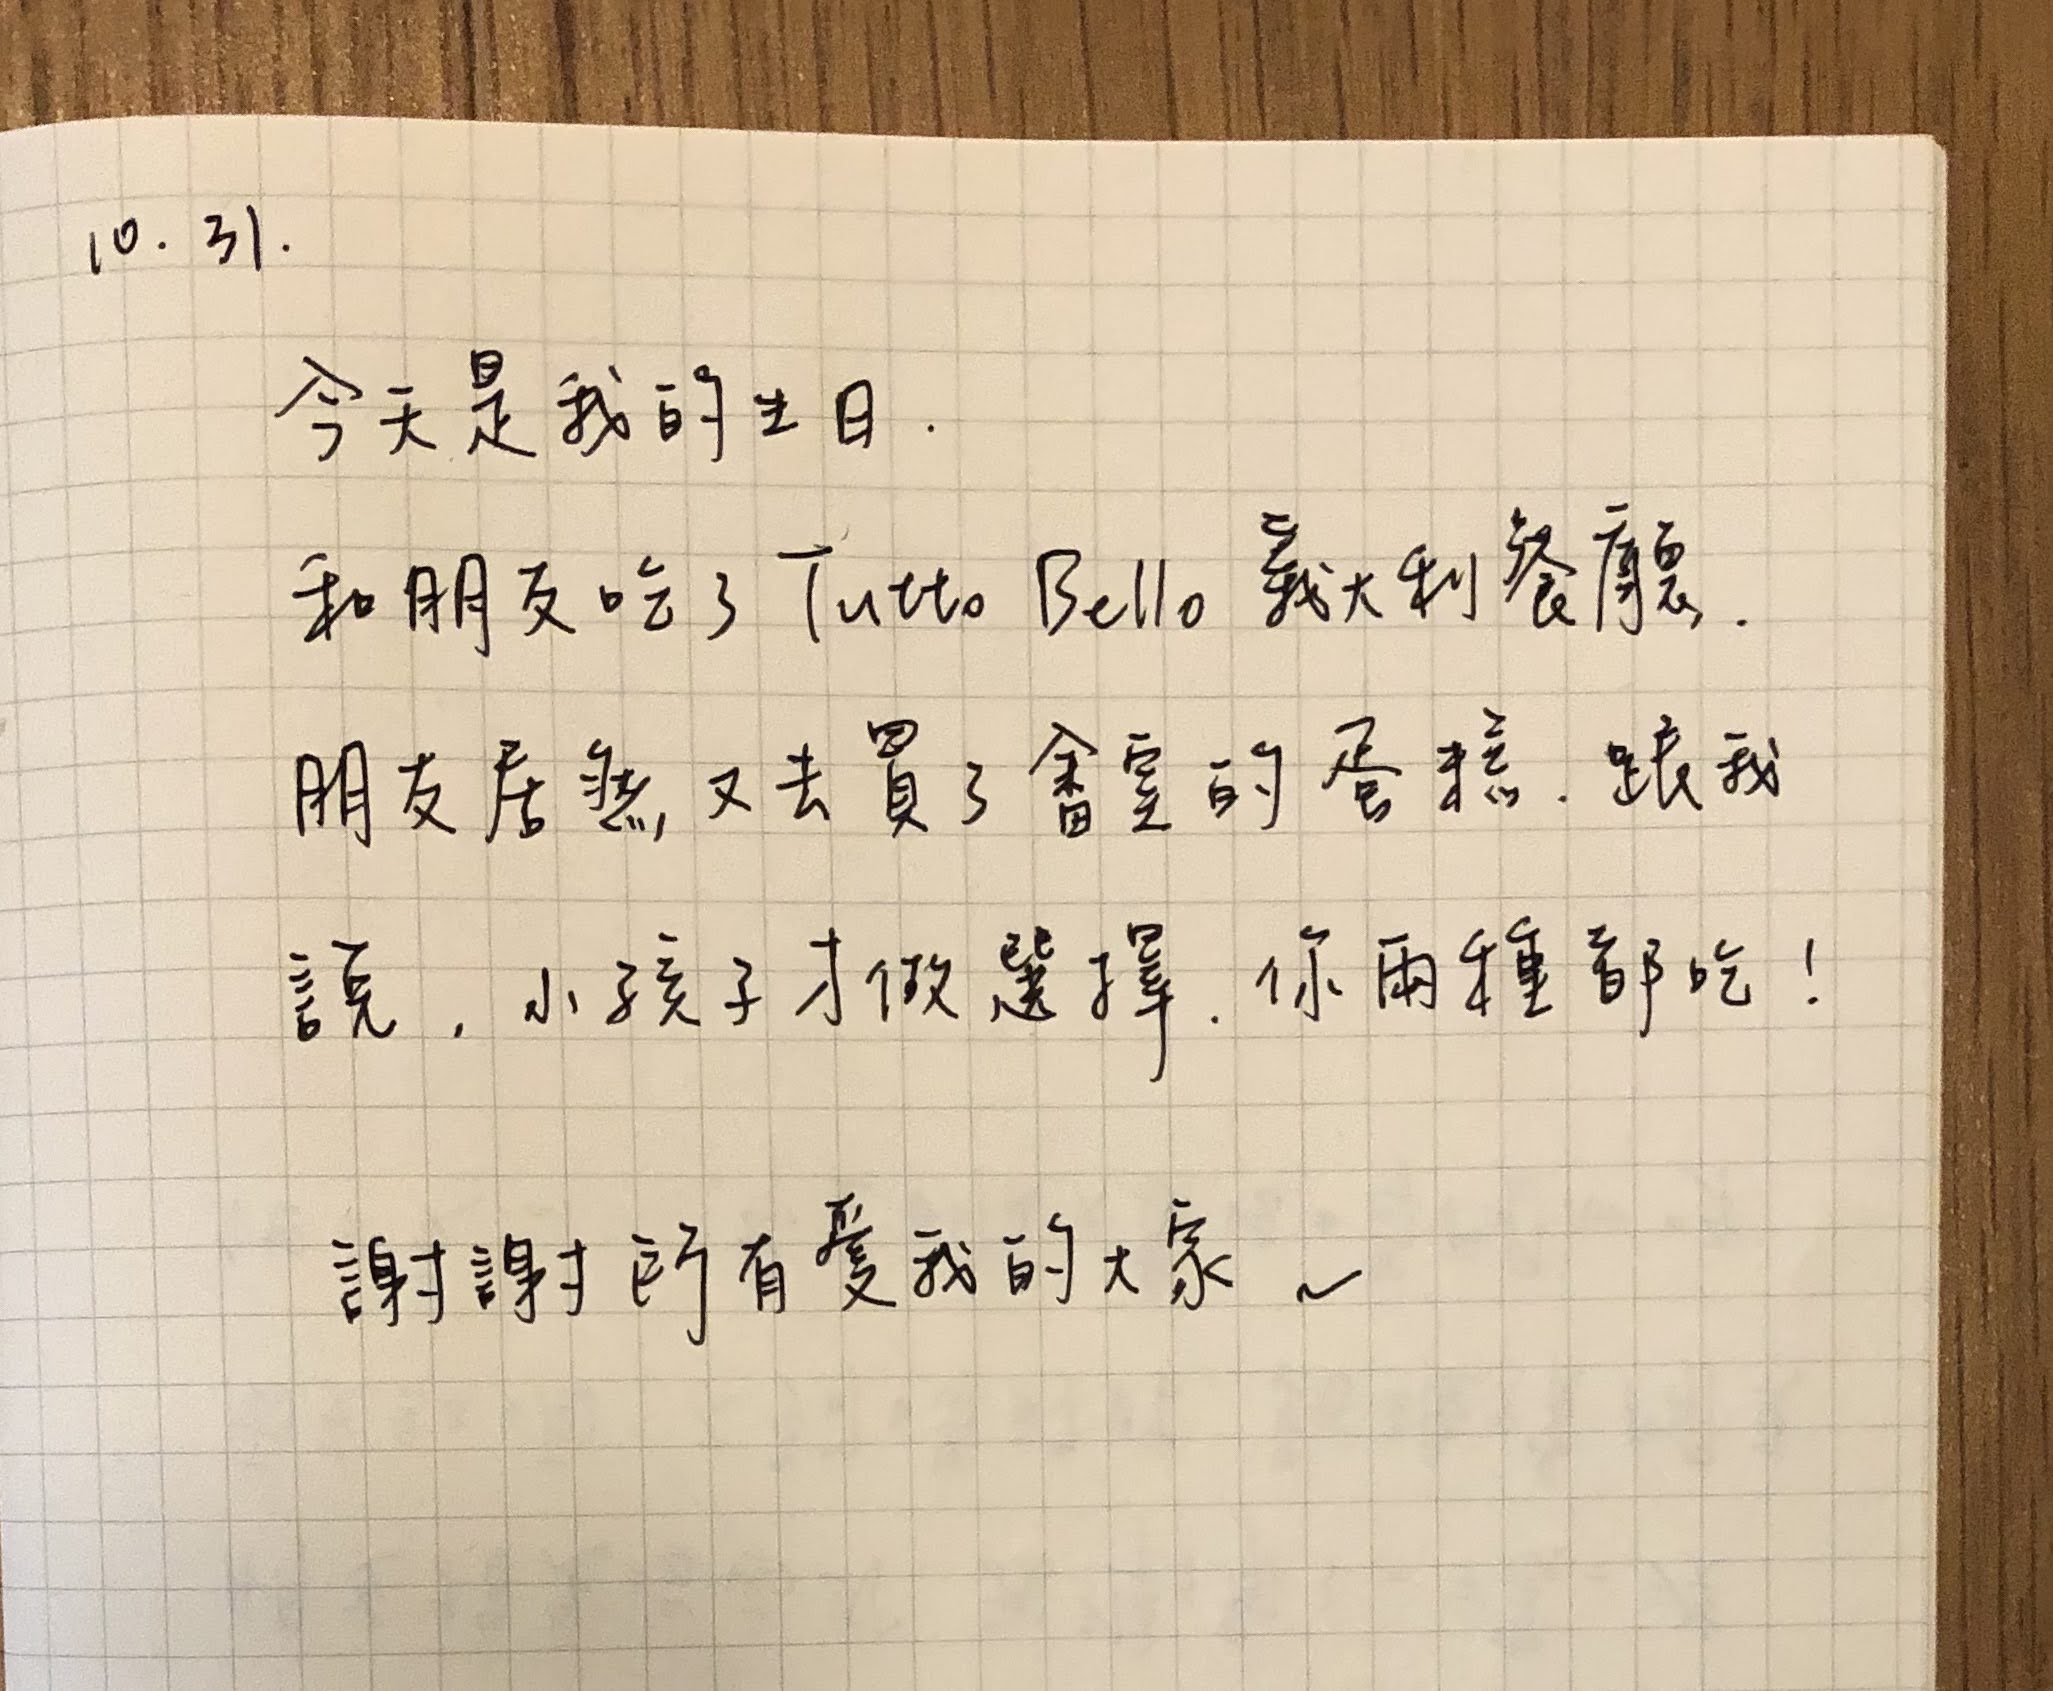 10.31.
今天是我的生日.
和朋友吃了Tutto Bello 義大利餐廳.
朋友居然又去買了畬室的蛋糕.跟我
說,小孩子才做選擇.你兩種都吃!
謝謝所有愛我的大家~